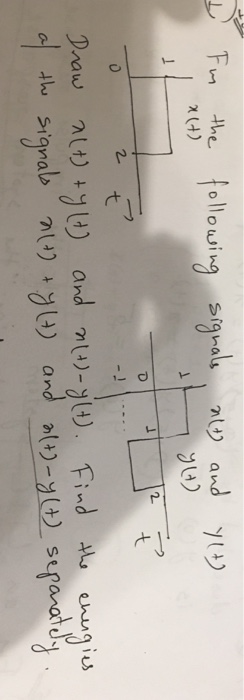 1) For the following signals x(t) and y(t)
x(t)
1
0
2
t
y(t)
1
0
1
2
t
-1
Draw x(t) + y(t) and x(t) - y(t). Find the energies
of the signals x(t) + y(t) and x(t) - y(t) separately.